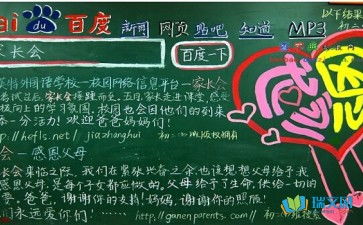 Bai du 百度
新闻 网页 贴吧 知道 MP3
以下结果
家长会
百度一下
英特外国语学校—校园网络信息平台—家长会
考试过后,家长会接踵而至。五月,家长走进课堂,感受
极向上的学习氛围。校园也会因他们的到来
添一分活力!欢迎爸爸妈妈们!
http://hefls.net/jiazhanghui
会—感恩父母
家长会来临之际,我们在紧张兴奋之余,也该想想父母给予我
感恩父母,是每个子女都应做的。父母给予了生命,供给一切的
爱。爸爸,谢谢你的支持!妈妈,谢谢你的照顾!
们永远爱你们!
http://ganenparents.com/
恋